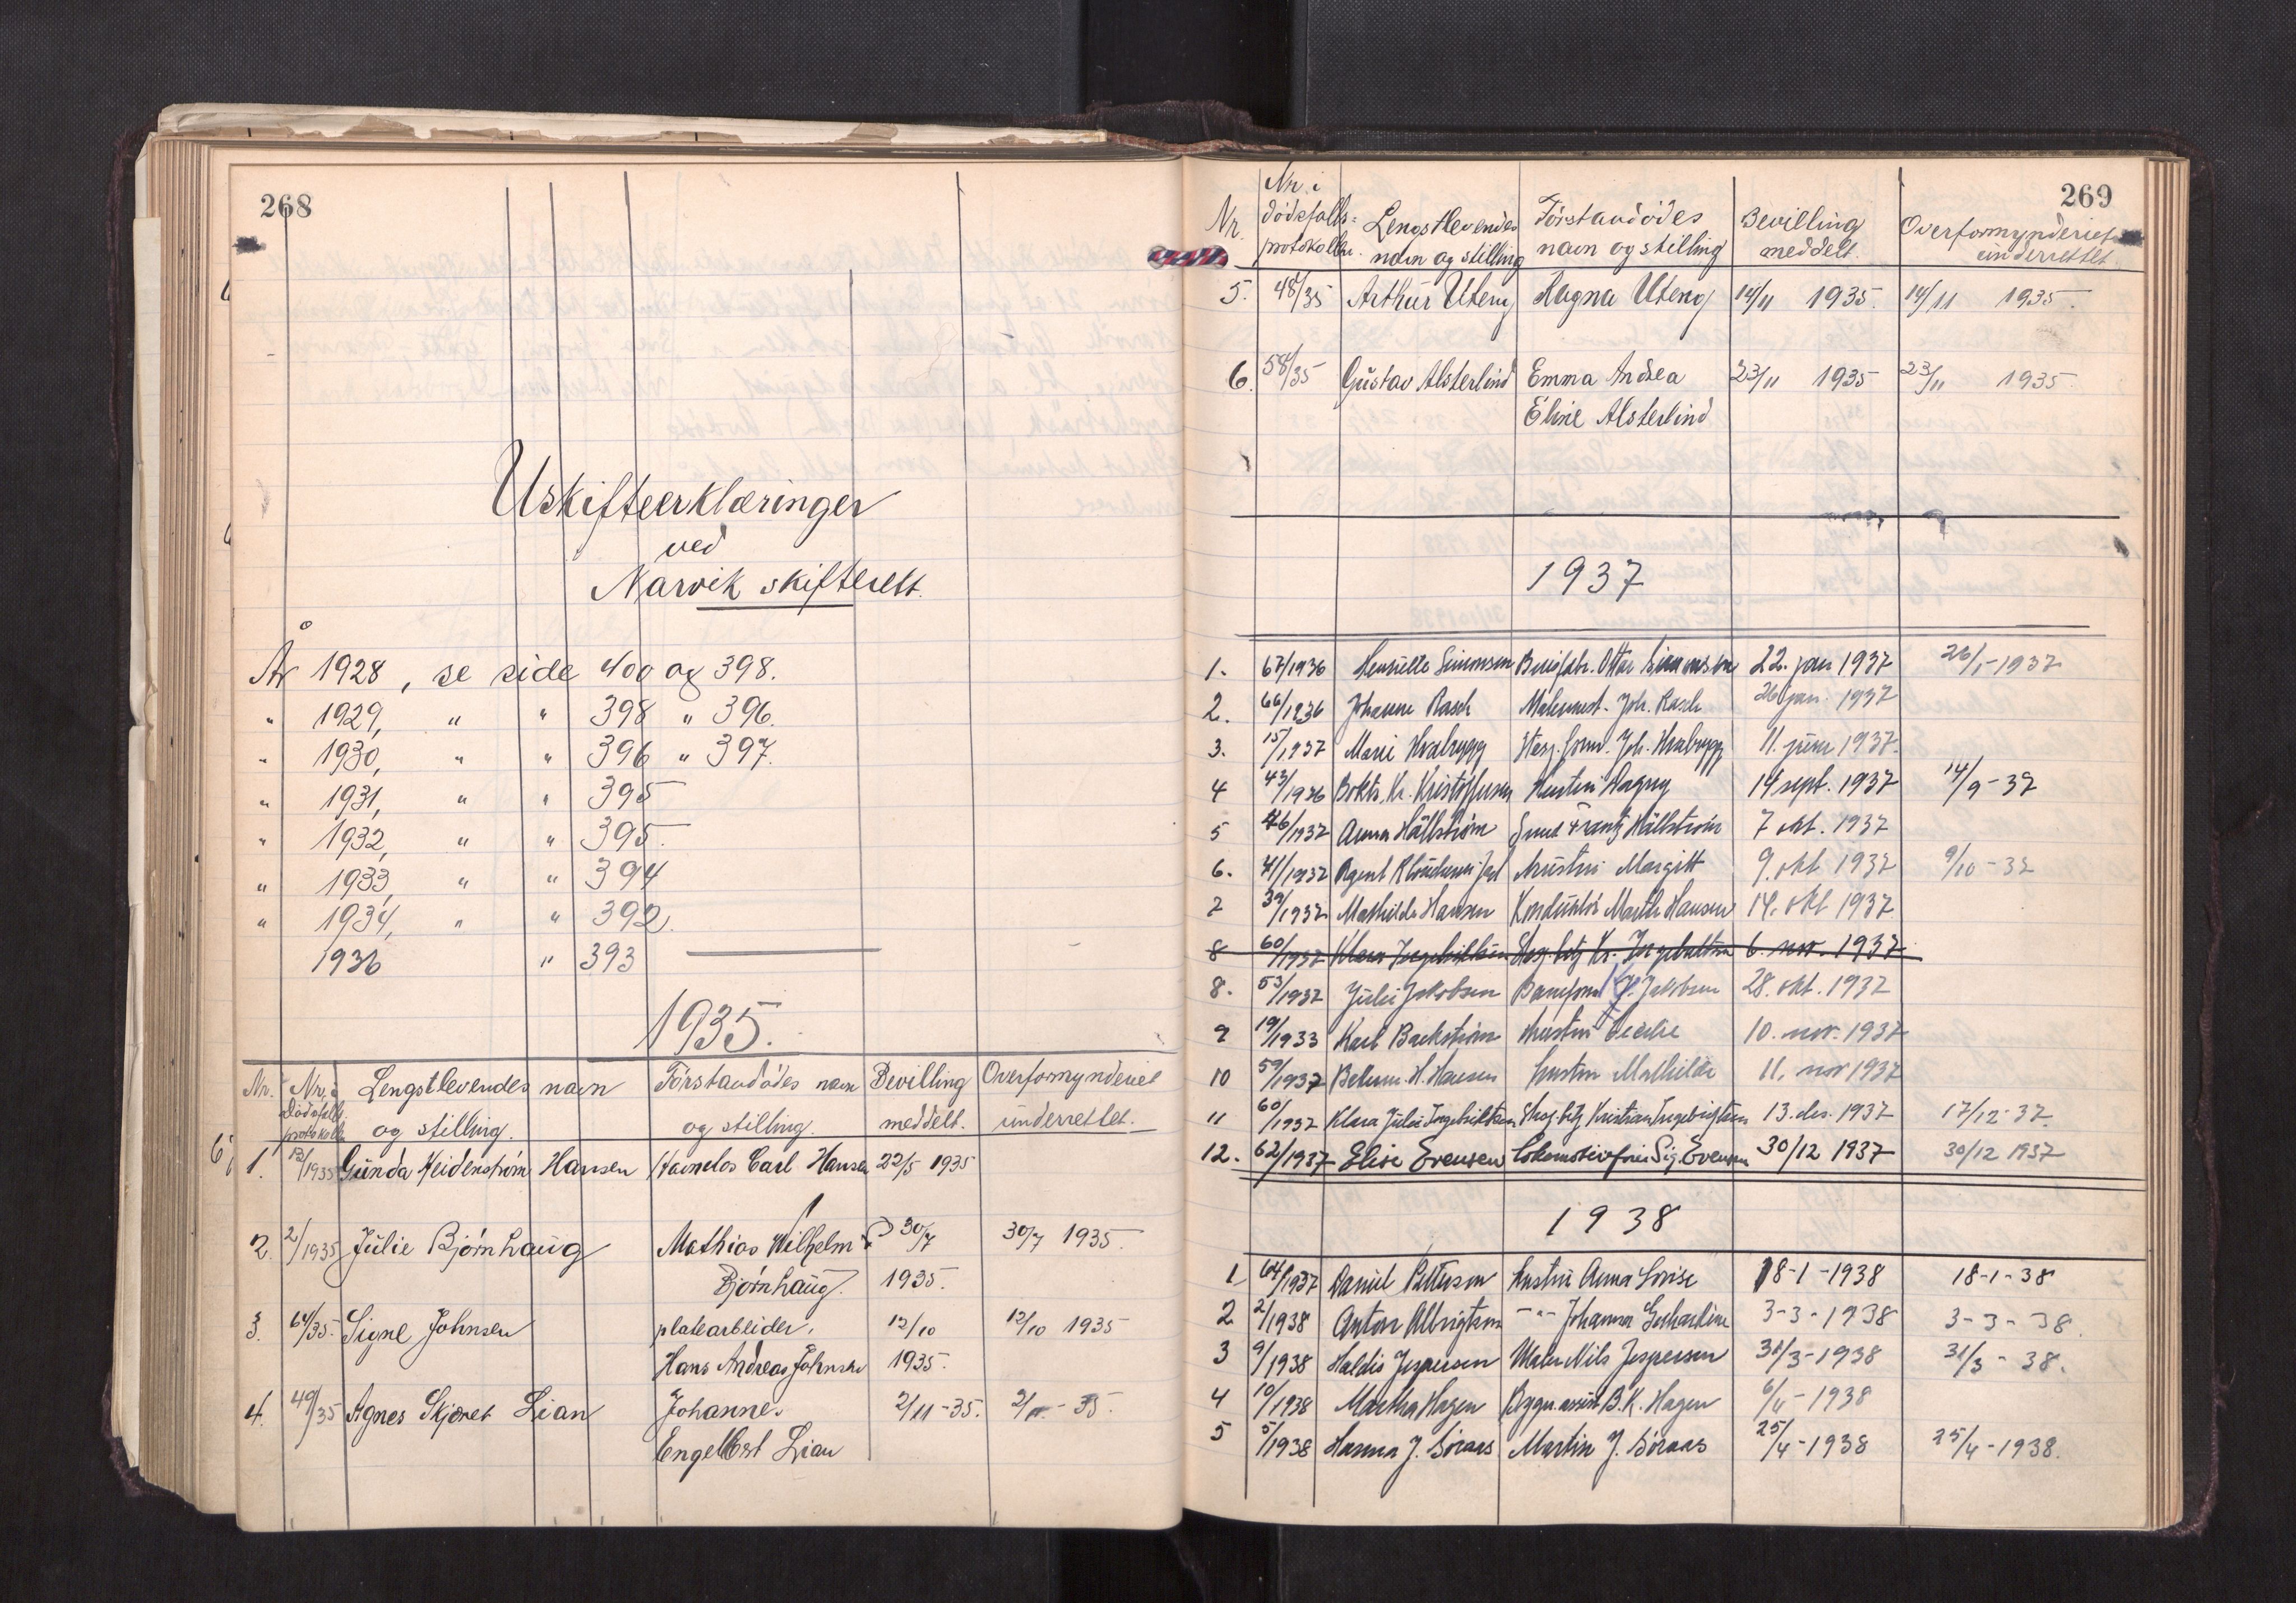 268
Uskifteerklæringer
ved
Narvik skifterett.
År 1928, se side 400 og 398.
" 1929, " " 398 " 396.
" 1930, " " 396 " 397.
" 1931, " " 395
" 1932, " " 395.
" 1933, " " 394
" 1934, " " 392.
1936 " 393
1935.
Nr. Nr. i dødsfalls protokolln Lengstlevendes navn og stilling. Førstavdødes navn og stilling. Bevilling meddelt. Overformynderiet underrettet.
1. 12/1935 Gunda Heidenstrøm Hansen Havnelos Carl Hansen 22/5 1935
2. 2/1935 Julie Bjørnhaug Mathias Wilhelm 30/7 30/7 1935.
Bjørnhaug. 1935.
3. 64/35. Signe Johnsen platearbeider, 12/10 12/10 1935
Hans Andreas Johnsen 1935.
4. 49/35 Agnes Skjæret Lian Johannes 2/11-35. 2/11-35.
Engelbert Lian
269
Nr. Nr. i dødsfalls-protokollen. Lengstlevendes navn og stilling Førstavdødes navn og stilling Bevilling meddelt. Overformynderiet underrettet.
5. 48/35 Arthur Uteng Magna Uteng 14/11 1935. 14/11 1935.
6. 58/35 Gustav Alsterlind Emma Andrea 23/11 1935 23/11 1935.
Eline Alsterlind
1937
1. 67/1936 Henriette Simonsen Ottar Simonsen 22. jan 1937 26/1-1937
2. 66/1936 Johanne Rasch Malermest. Joh. Rasch 26 jan. 1937
3. 15/1937 Marie Joh. 11. juni 1937.
4 43/1936 Kr. Kristoffersen Hustru Dagny 14 sept. 1937 14/9-37
5 46/1937 Anna Hällström Frantz Hällström 7 okt. 1937
6. 41/1937 Agent Hustru Margitt 9. okt 1937 9/10-37
7 39/1937 Mathilde Hansen Konduktør Martin Hansen 14. okt 1937
8 60/1937 Klara Ingebriktsen Kr. Ingebriktsen 6. nov. 1937
8. 53/1937 Julie Jakobsen Baneform. Jakobsen 28. okt. 1937
9 19/1933 Karl Backstrøm Hustru Cecilie 10. nov. 1937
10 59/1937 H. Hansen Hustru Mathilde 11. nov 1937
11 60/1937 Klara Julie Ingebriktsen Kristian Ingebrigtsen 13. des. 1937 17/12-37
12. 62/1937 Elise Evensen Lokomotivfører Sig. Evensen 30/12 1937 30/12 1937
1938
1 64/1937 Daniel Pettersen Hustru Anna Lovise 18-1-1938 18-1-38
2 2/1938 Anton Albrigtsen -"- Johanna 3-3-1938 3-3-38.
3 9/1938 Haldis Jespersen Maler Nils Jespersen 31/3-1938 31/3-38.
4 10/1938 Martha Hagen B.K. Hagen 6/4-1938
5 5/1938 Hanna J. Soraas Martin J. Soraas 25/4-1938 25/4-1938.